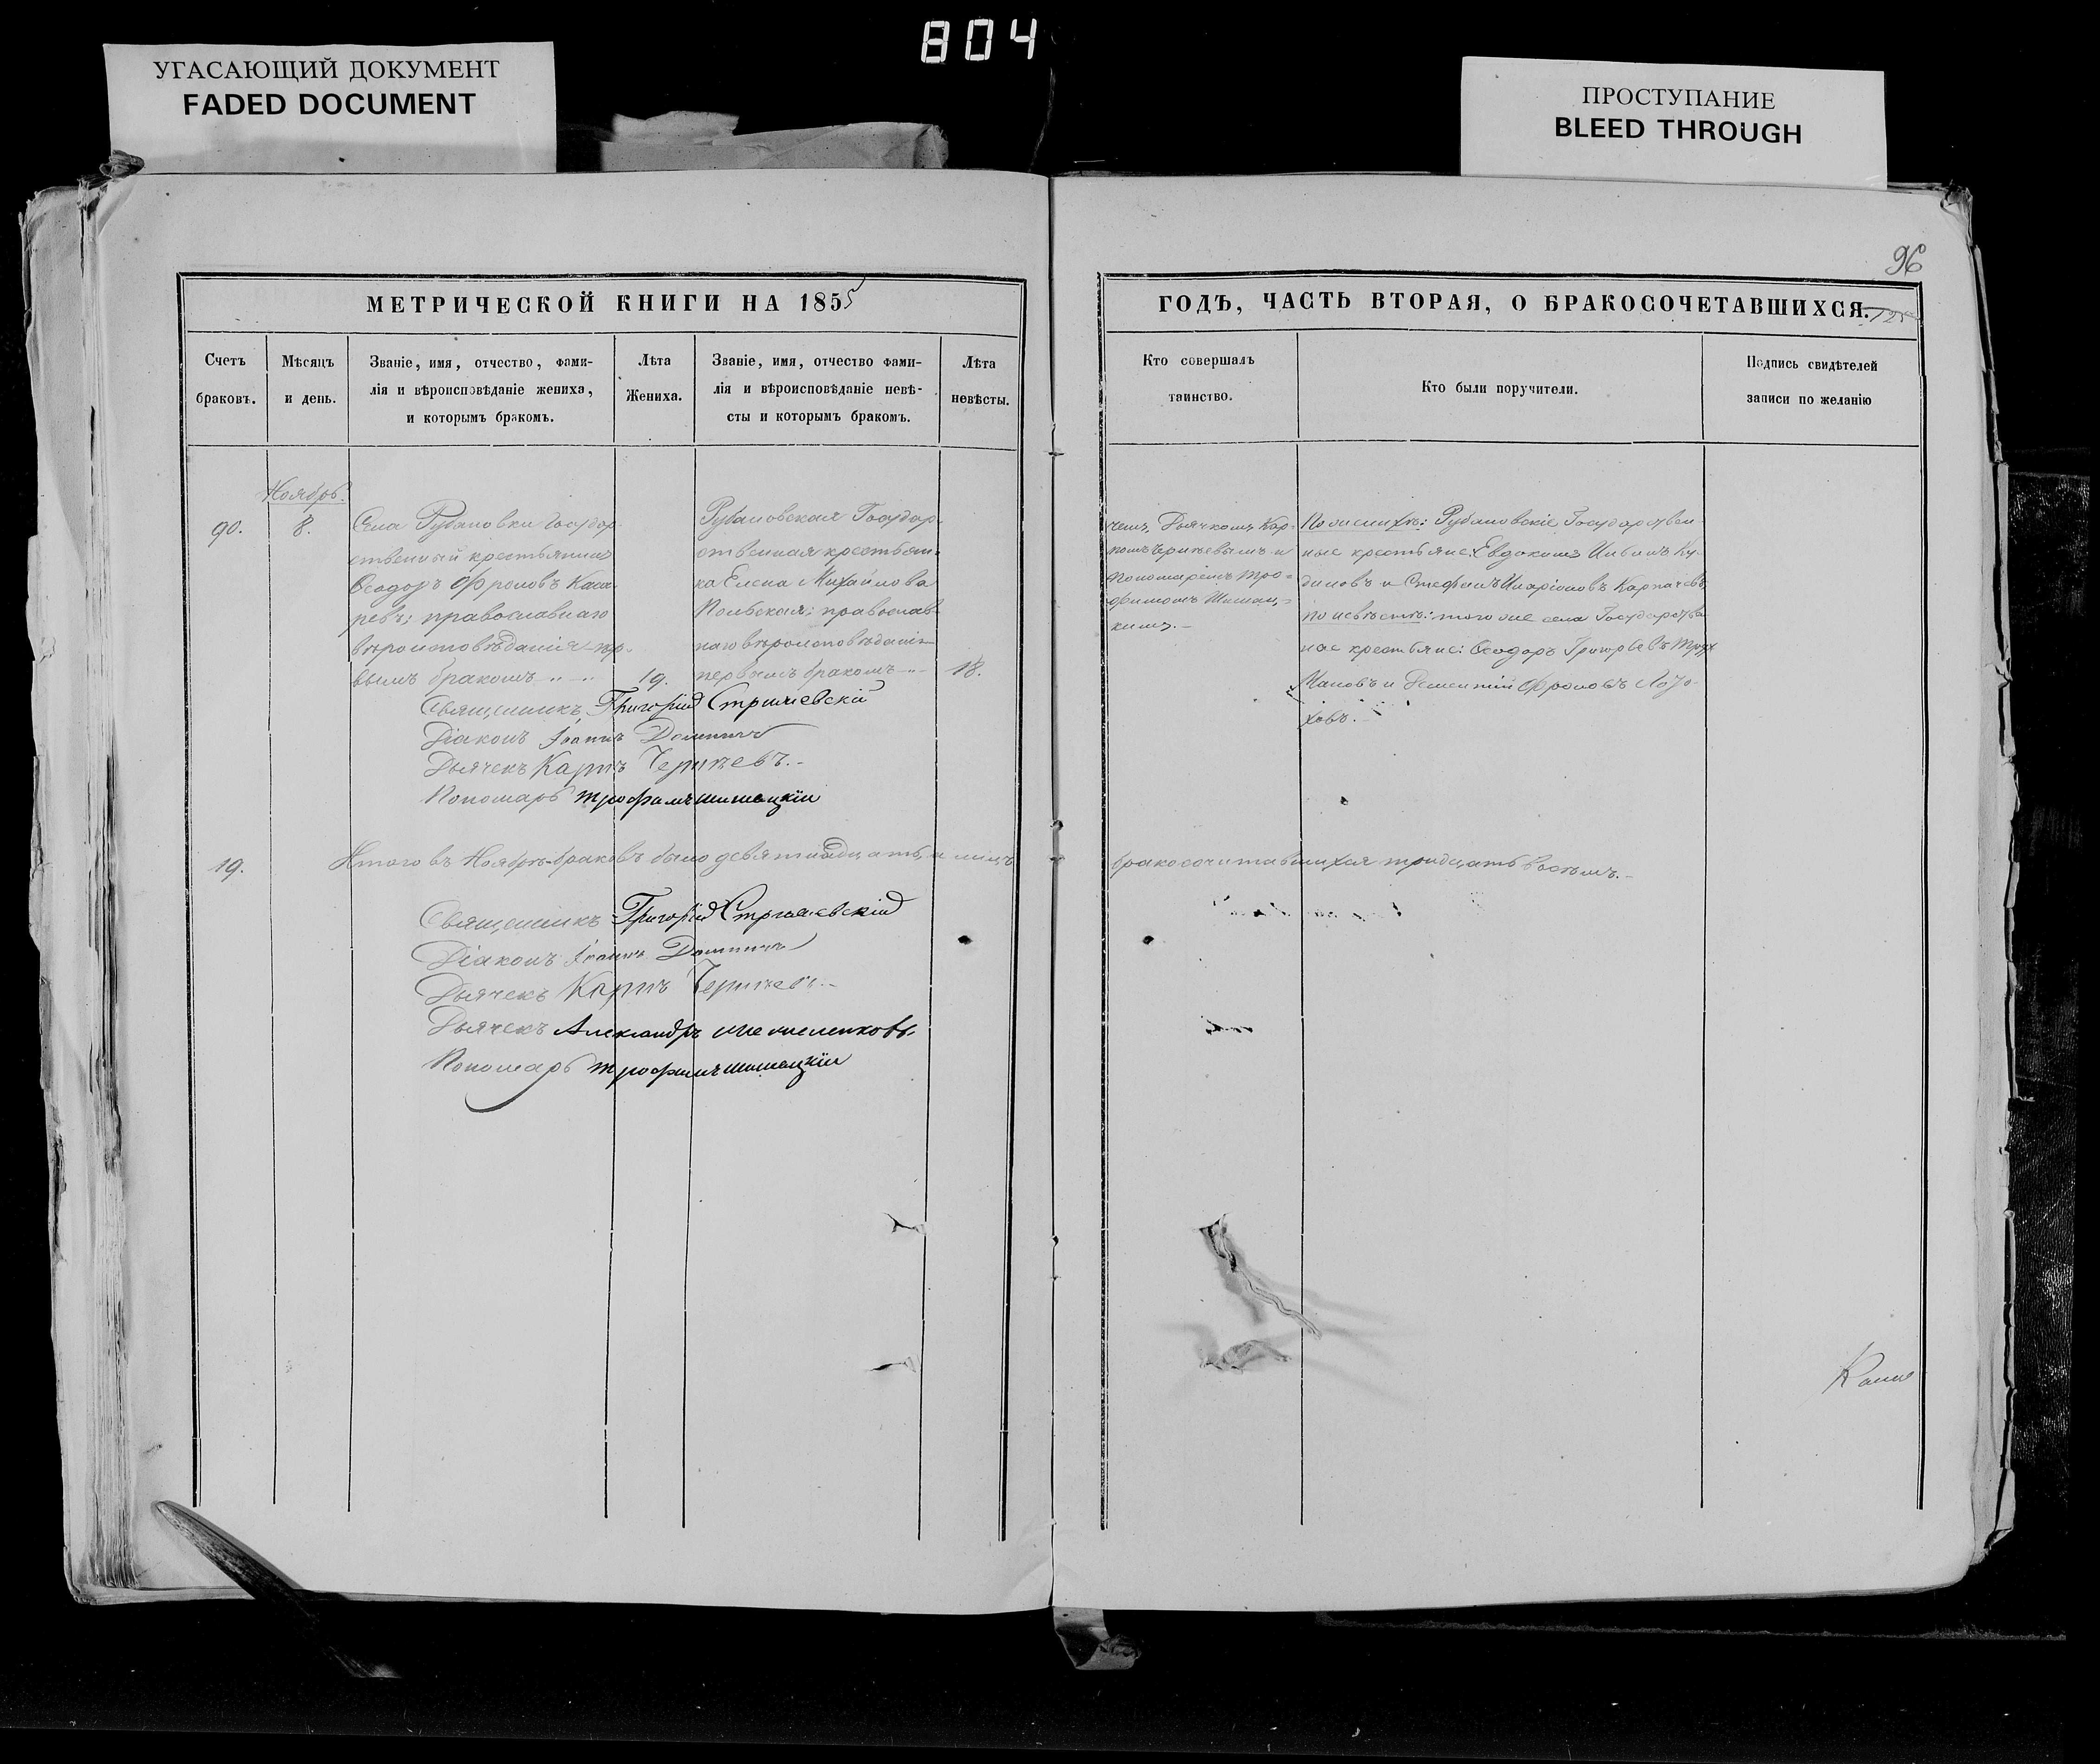 804
УГАСАЮЩИЙ ДОКУМЕНТ
FADED DOCUMENT
ПРОСТУПАНИЕ
BLEED THROUGH
96
МЕТРИЧЕСКОЙ КНИГИ НА 1855
Счетъ
браковъ.
Мѣсяцъ
и день.
Званіе, имя, отчество, фами-
лія и вѣроисповѣданіе жениха,
и которымъ бракомъ.
Лѣта
Жениха.
Званіе, имя, отчество фами-
лія и вѣроисповѣданіе невѣ-
сты и которымъ бракомъ.
Лѣта
невѣсты.
ГОДЪ, ЧАСТЬ ВТОРАЯ, О БРАКОСОЧЕТАВШИХСЯ.
Кто совершалъ
таинство.
Кто были поручители.
Подпись свидѣтелей
записи по желанію
Ноябрь.
90.
8.
Села Рубановки Государ-
ственный крестьянинъ
Ѳеодоръ Фроловъ
православнаго
вѣроисповѣданія пер-
вымъ бракомъ
19.
Рубановская Государ-
ственная крестьян-
ка Елена Михайлова
православ-
наго вѣроисповѣданія
первымъ бракомъ
18.
Дьячкомъ Кар-
помъ и
Пономаремъ Тро-
фимомъ Шишац-
кимъ.
По женихѣ: Рубановскіе Государствен-
ные крестьяне: Евдокимъ
и Стефанъ Иларіоновъ
по невѣстѣ: того же села Государствен-
ные крестьяне: Ѳеодоръ Григорьевъ
и Дементій Фроловъ
Священникъ Григорій
Діаконъ Іоаннъ
Дьячекъ Карпъ
Пономарь Трофимъ Шишацкій
19.
Итого въ Ноябрѣ браковъ было девятнадцать, а лицъ
бракосочетавшихся тридцать восемь.
Священникъ Григорій
Діаконъ Іоаннъ
Дьячекъ Карпъ
Дьячекъ Александръ
Пономарь Трофимъ Шишацкій